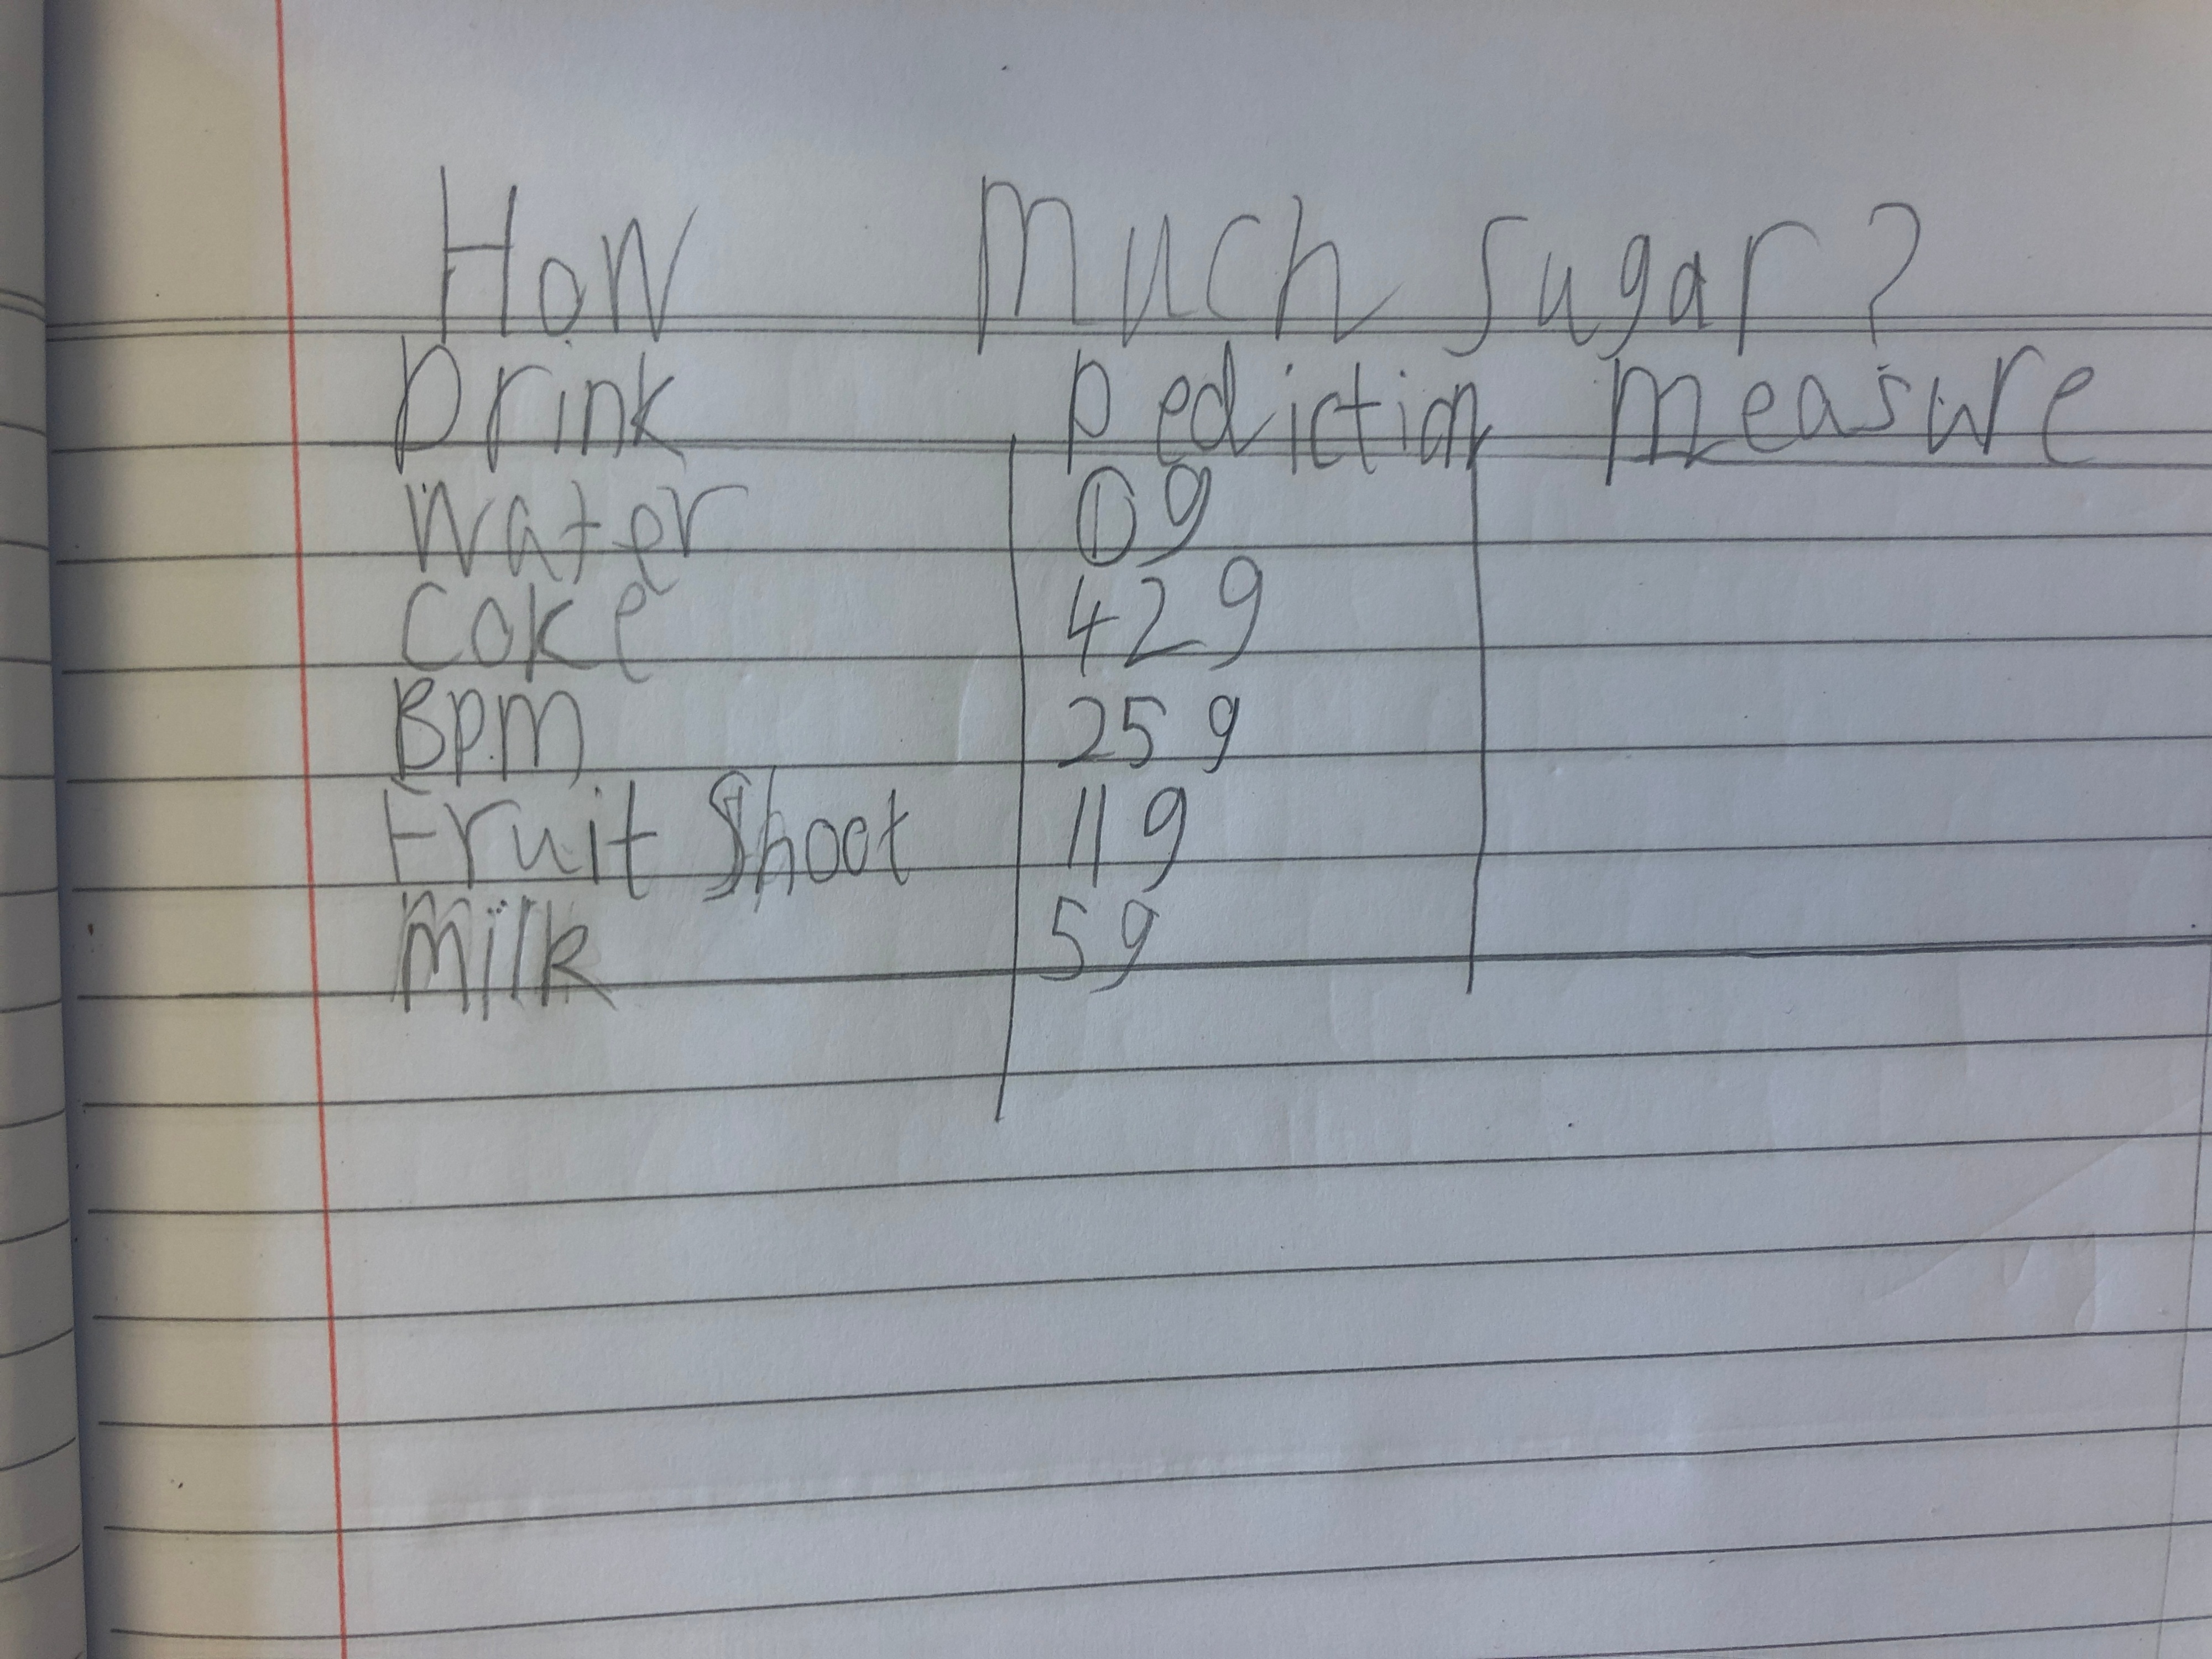 How Much sugar?
Drink pediction measure
Water 0g
Coke 42g
Bpm 25g
Fruit Shoot 11g
Milk 5g